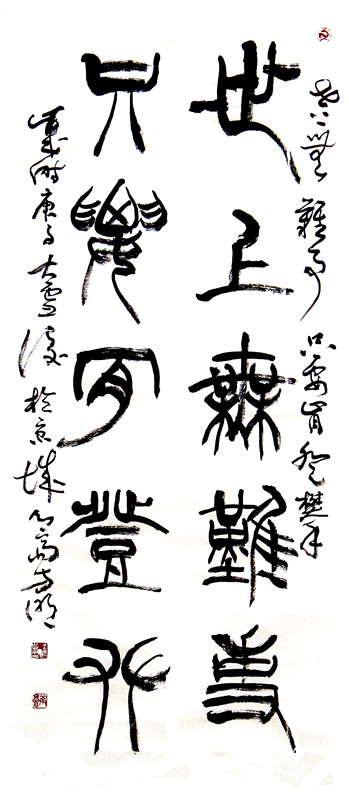 世上無難事 只要肯登攀
世上無難事
只要肯登攀
歲時庚子大雪後於京城